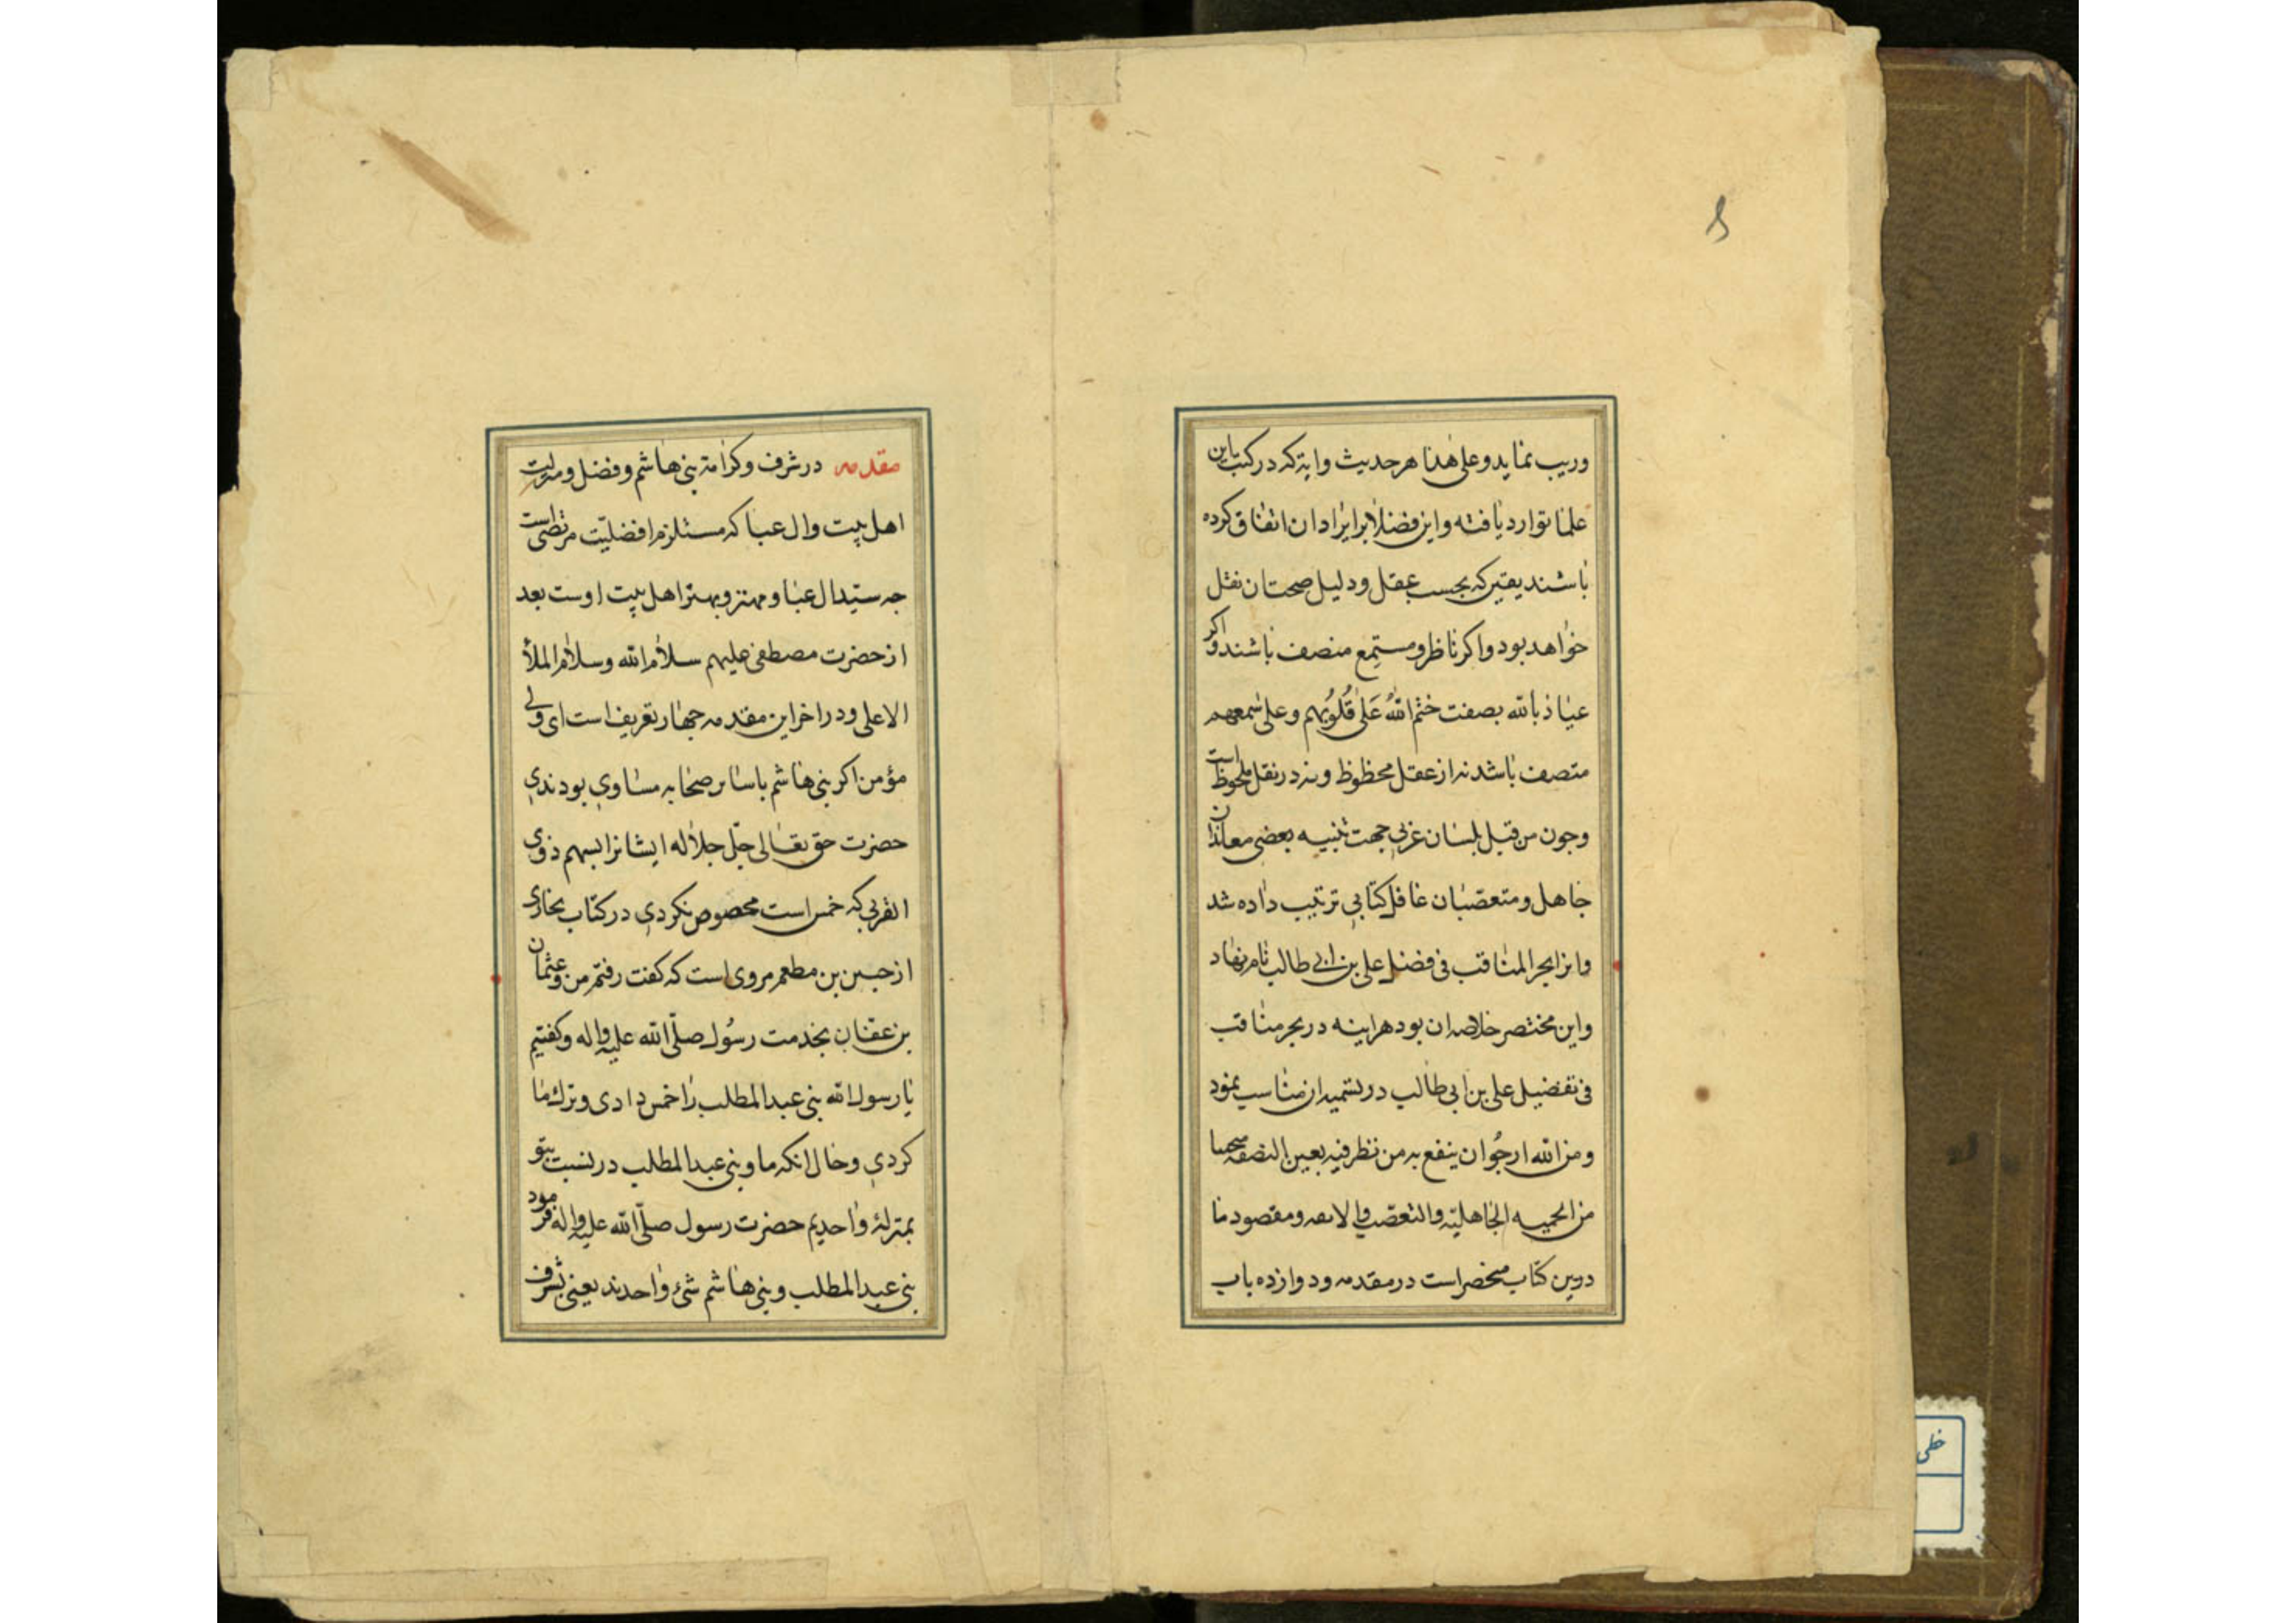 ۸
وریب نماید و علی هذا هر حدیث و ایة که در کتب این
علما توارد یافته و این فضلا بر ایراد ان اتفاق کرده
باشند یقین که بحسب عقل و دلیل صحت ان نقل
خواهد بود و اکر ناظر و مستمع منصف باشند و اکر
عیاذ بالله بصفت ختم الله عَلیٰ قُلُوبُهِم و علی سمعهم
متصف باشد نه از عقل محظوظ و نه در نقل ملحوظست
و چون من قبل بلسان عربی جهت تنبیه بعضی معاندان
جاهل و متعصّبان غافل کتابی ترتیب داده شد
و انرا بحر المناقب فی فضل علی بن ابی طالب نام نهاد
و این مختصر خلاصه ان بود هراینه در بحر مناقب
فی تفضیل علی بن ابی طالب در تسمیه ان مناسب نمود
و من الله ارجُوا ان ینفع به من نظر فیه بعین النصفه
من الحمیه الجاهلیّه والتعصّب و مقصود ما
درین کتاب منحصر است در مقدمه و دوازده باب
مقدمه در شرف و کرامة بنی هاشم و فضل و منزلت
اهل بیت و ال عبا که مستلزم افضلیّت مرتضی است
جه سیّد ال عبا و مهتر و بهتر اهل بیت اوست بعد
از حضرت مصطفی علیهم سلام الله و سلام الملأ
الاعلی و در اخر این مقدمه چهار تعریف است ای ولی
مؤمن اکر بنی هاشم با سایر صحابه مساوی بودندی
حضرت حق تعالی جلّ جلاله ایشانرا بسهم ذوی
القربی که خمس است مخصوص نکردی در کتاب بخاری
از جبیر بن مطعم مروی است که کفت رفتم من و عثمان
بن عفان بخدمت رسُول صلّی الله علیه و اله و کفتیم
یا رسول الله بنی عبد المطلب را خمس دادی و ترک ما
کردی و حال انکه ما و بنی عبد المطلب در نسبت بتو
بمنزلهٔ واحدیم حضرت رسول صلّی الله علیه و اله فرمود
بنی عبد المطلب و بنی هاشم شیٔ واحدند یعنی بشرف
خطی